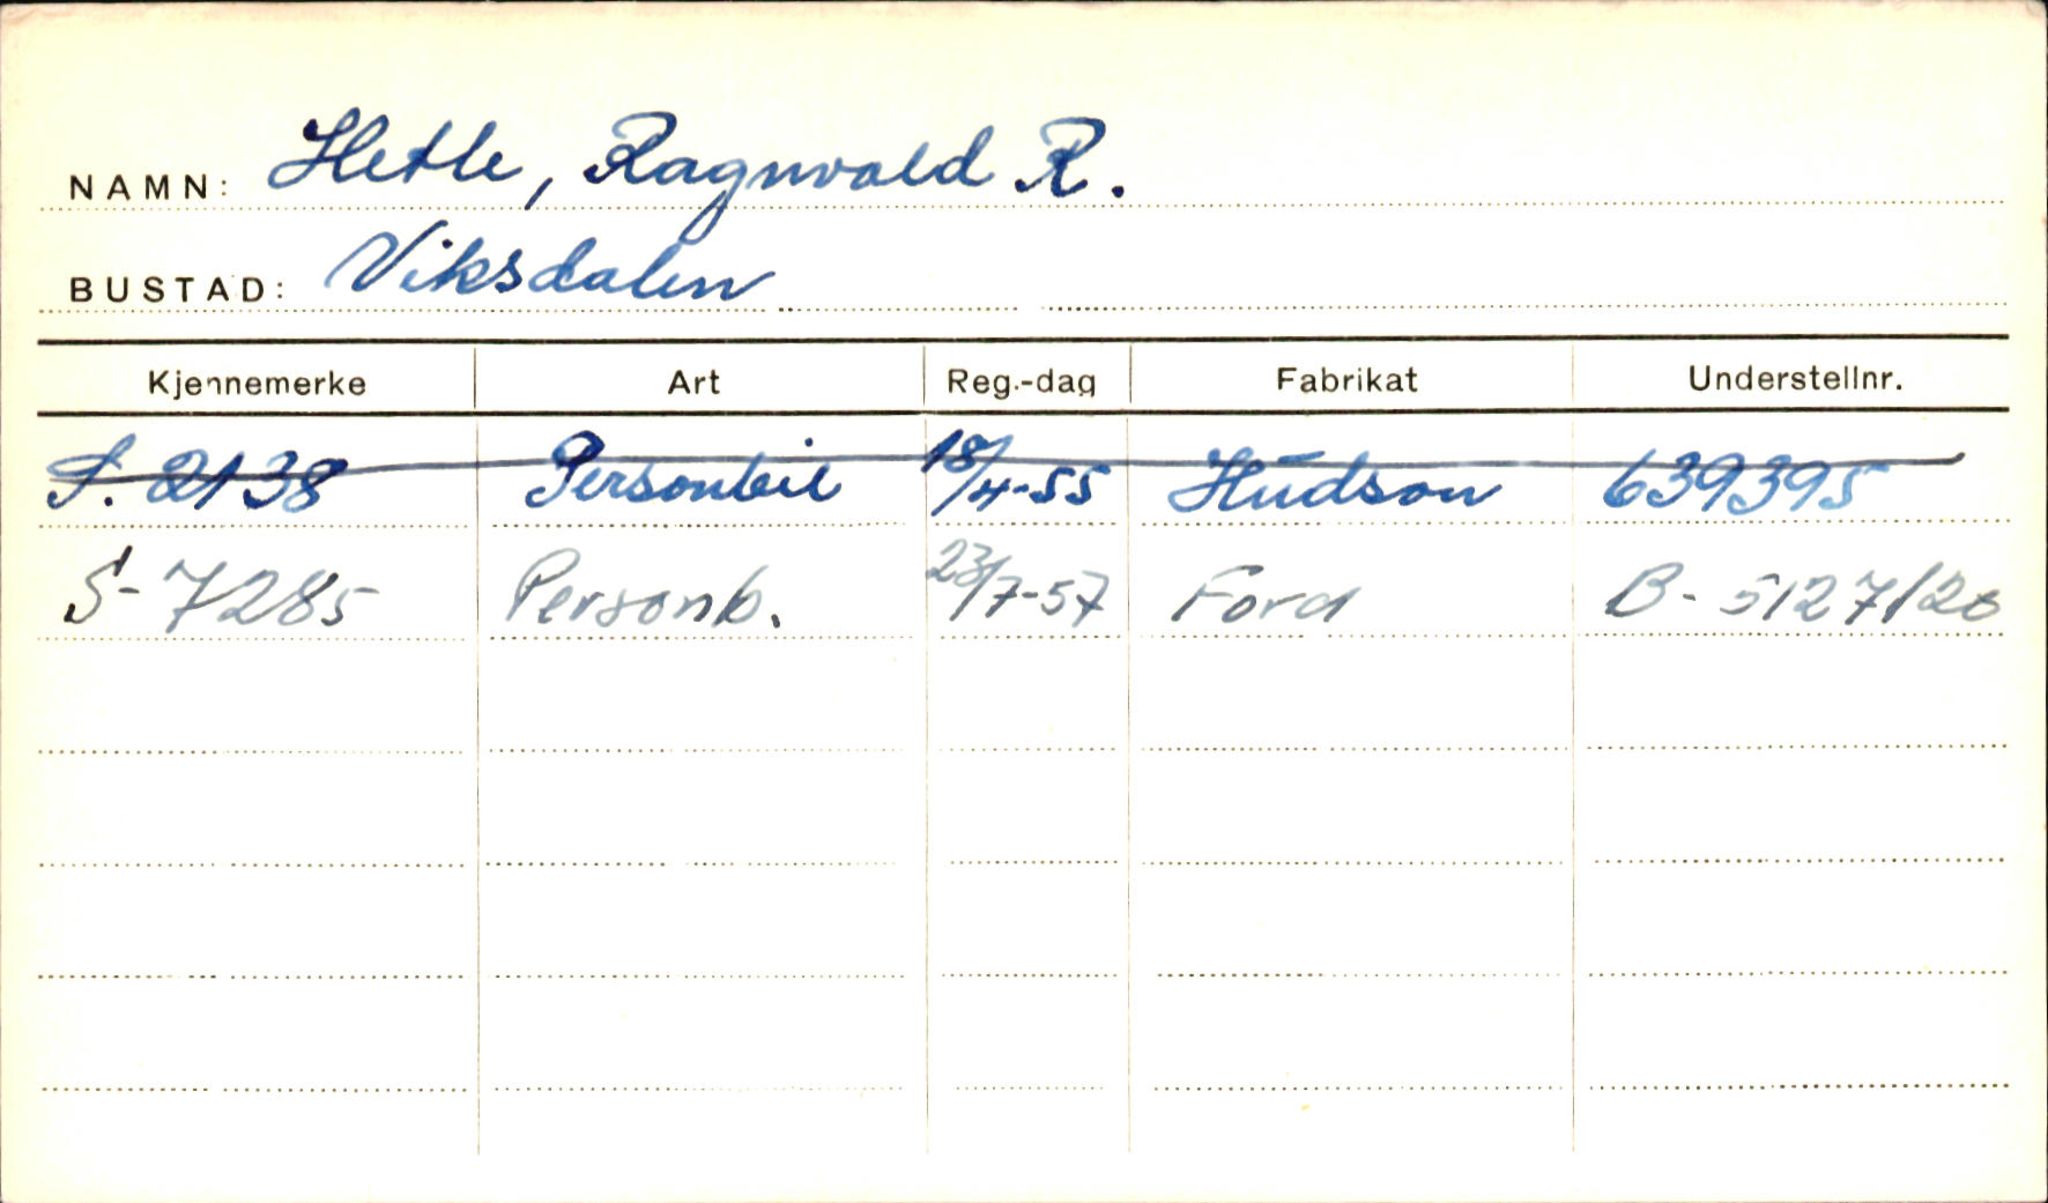 NAMN: Hetle, Ragnvald R.
BUSTAD: Viksdalen
Kjennemerke Art Reg.-dag Fabrikat Understellnr.
S. 2138 Personbil 18/4-55 Hudson 639395
S-7285 Personb. 23/7-57 Ford B-5127/26